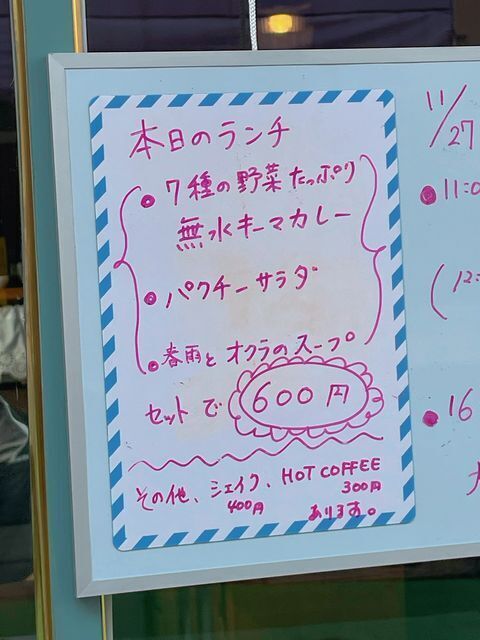 本日のランチ
• 7種の野菜たっぷり
無水キーマカレー
• パクチーサラダ
• 春雨とオクラのスープ
セットで 600円
その他、シェイク、HOT COFFEE
400円 300円
あります。
11/27
• 11:0
(12:
• 16